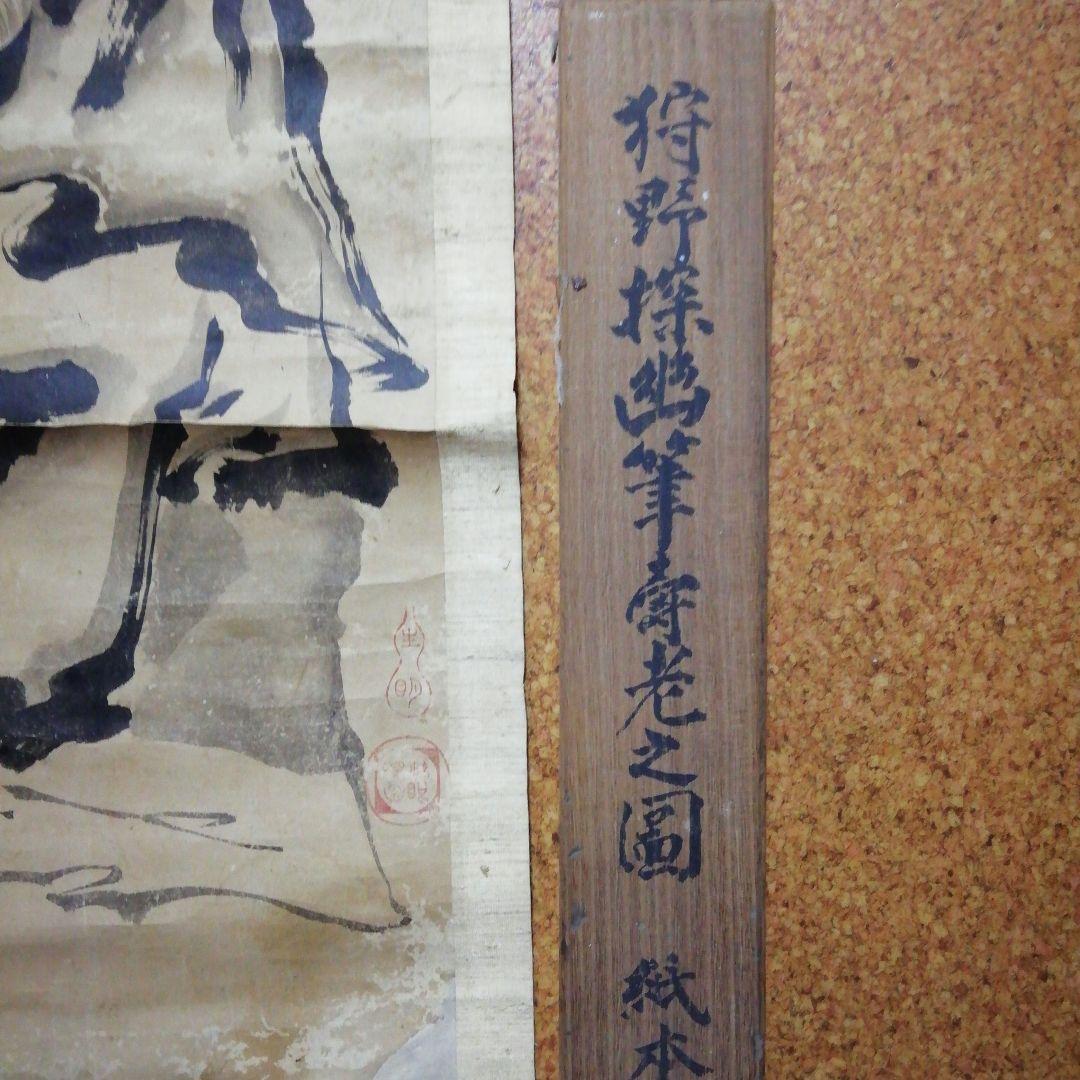 狩野探幽筆壽老之圖 紙本
生明